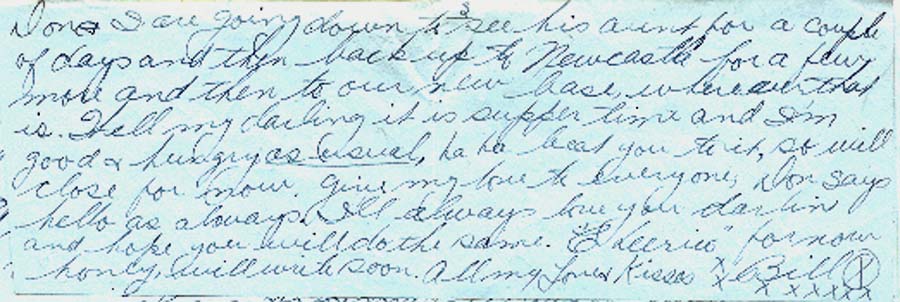 Don & I are going down to see his aunt for a couple
of days and then back up to Newcastle for a few
more and then to our new base, where ever that
is. Well my darling it is supper time and I'm
good & hungry as usual, ha ha beat you to it, so will
close for now. Give my love to everyone, Don says
hello as always. I'll always love you darlin
and hope you will do the same. "Cheerio" for now
honey, will write soon. All my Love & Kisses Bill
x x x x x x x